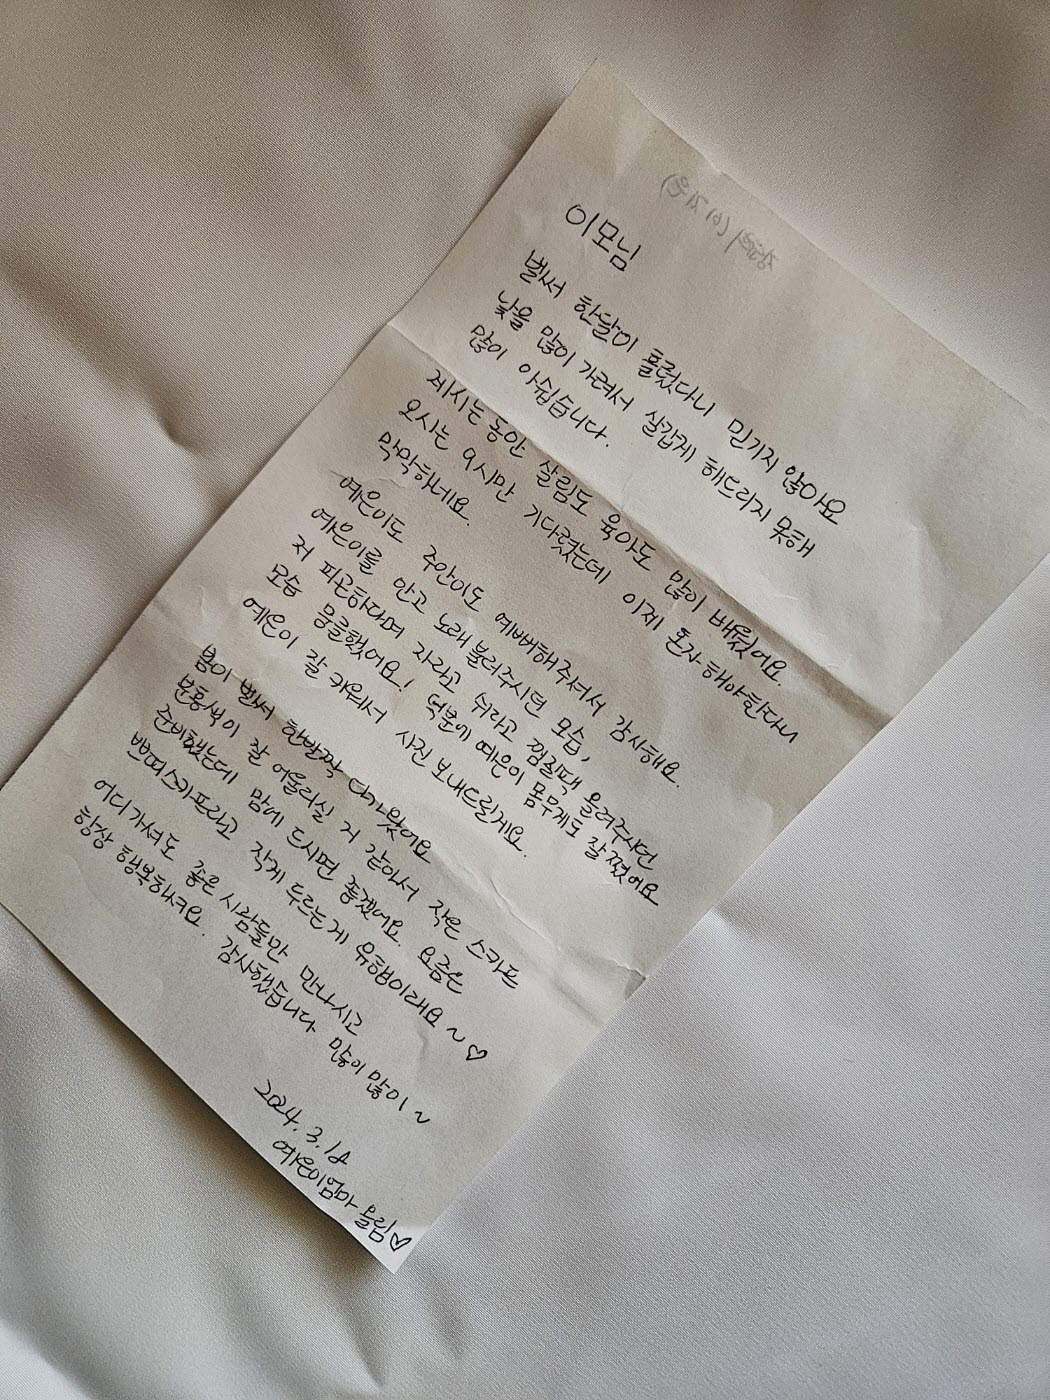 이모님
벌써 한달이 흘렀다니 믿기지 않아요
낯을 많이 가려서 살갑게 해드리지 못해
많이 아쉽습니다.
계시는 동안 살림도 육아도 많이 배웠어요.
오시는 9시만 기다렸는데 이제 혼자 해야한다니
막막하네요.
예은이도 주안이도 예뻐해주셔서 감사해요.
예은이를 안고 노래 불러주시던 모습,
저 피곤하다며 자라고 쉬라고 찜질팩 올려주시던
모습 뭉클했어요! 덕분에 예은이 몸무게도 잘 쪘어요
예은이 잘 키워서 사진 보내드릴게요.
봄이 벌써 한발짝 다가왔어요
분홍색이 잘 어울리실 거 같아서 작은 스카프
준비했는데 맘에 드시면 좋겠어요. 요즘은
쁘띠스카프라고 작게 두르는게 유행이래요~♡
어디 가셔도 좋은 사람들만 만나시고
항상 행복하세요. 감사했습니다 많이 많이~
2024. 3. 18
예은이엄마 올림♡